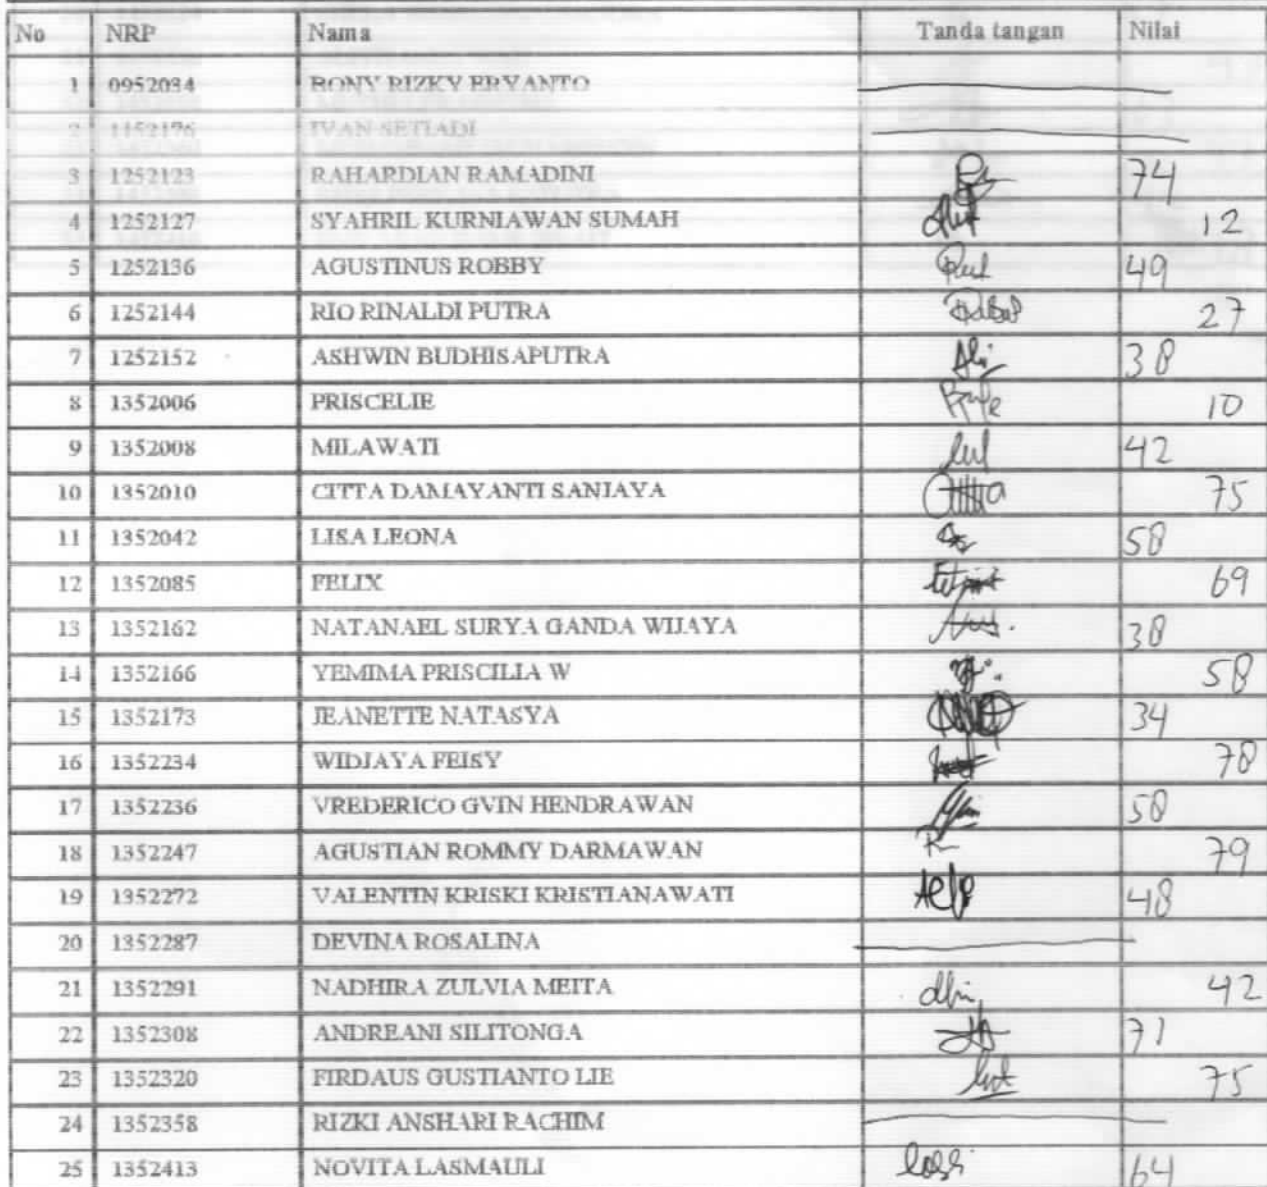 No NRP Nama Tanda tangan Nilai
1 0952034 BONY RIZKY ERYANTO
2 1152176 IVAN SETIADI
3 1252123 RAHARDIAN RAMADINI 74
4 1252127 SYAHRIL KURNIAWAN SUMAH 12
5 1252136 AGUSTINUS ROBBY 49
6 1252144 RIO RINALDI PUTRA 27
7 1252152 ASHWIN BUDHISAPUTRA 38
8 1352006 PRISCELIE 10
9 1352008 MILAWATI 42
10 1352010 CITTA DAMAYANTI SANJAYA 75
11 1352042 LISA LEONA 58
12 1352085 FELIX 69
13 1352162 NATANAEL SURYA GANDA WIJAYA 38
14 1352166 YEMIMA PRISCILIA W 58
15 1352173 JEANETTE NATASYA 34
16 1352234 WIDJAYA FEISY 78
17 1352236 VREDERICO GVIN HENDRAWAN 58
18 1352247 AGUSTIAN ROMMY DARMAWAN 79
19 1352272 VALENTIN KRISKI KRISTIANAWATI 48
20 1352287 DEVINA ROSALINA
21 1352291 NADHIRA ZULVIA MEITA 42
22 1352308 ANDREANI SILITONGA 71
23 1352320 FIRDAUS GUSTIANTO LIE 75
24 1352358 RIZKI ANSHARI RACHIM
25 1352413 NOVITA LASMAULI 64